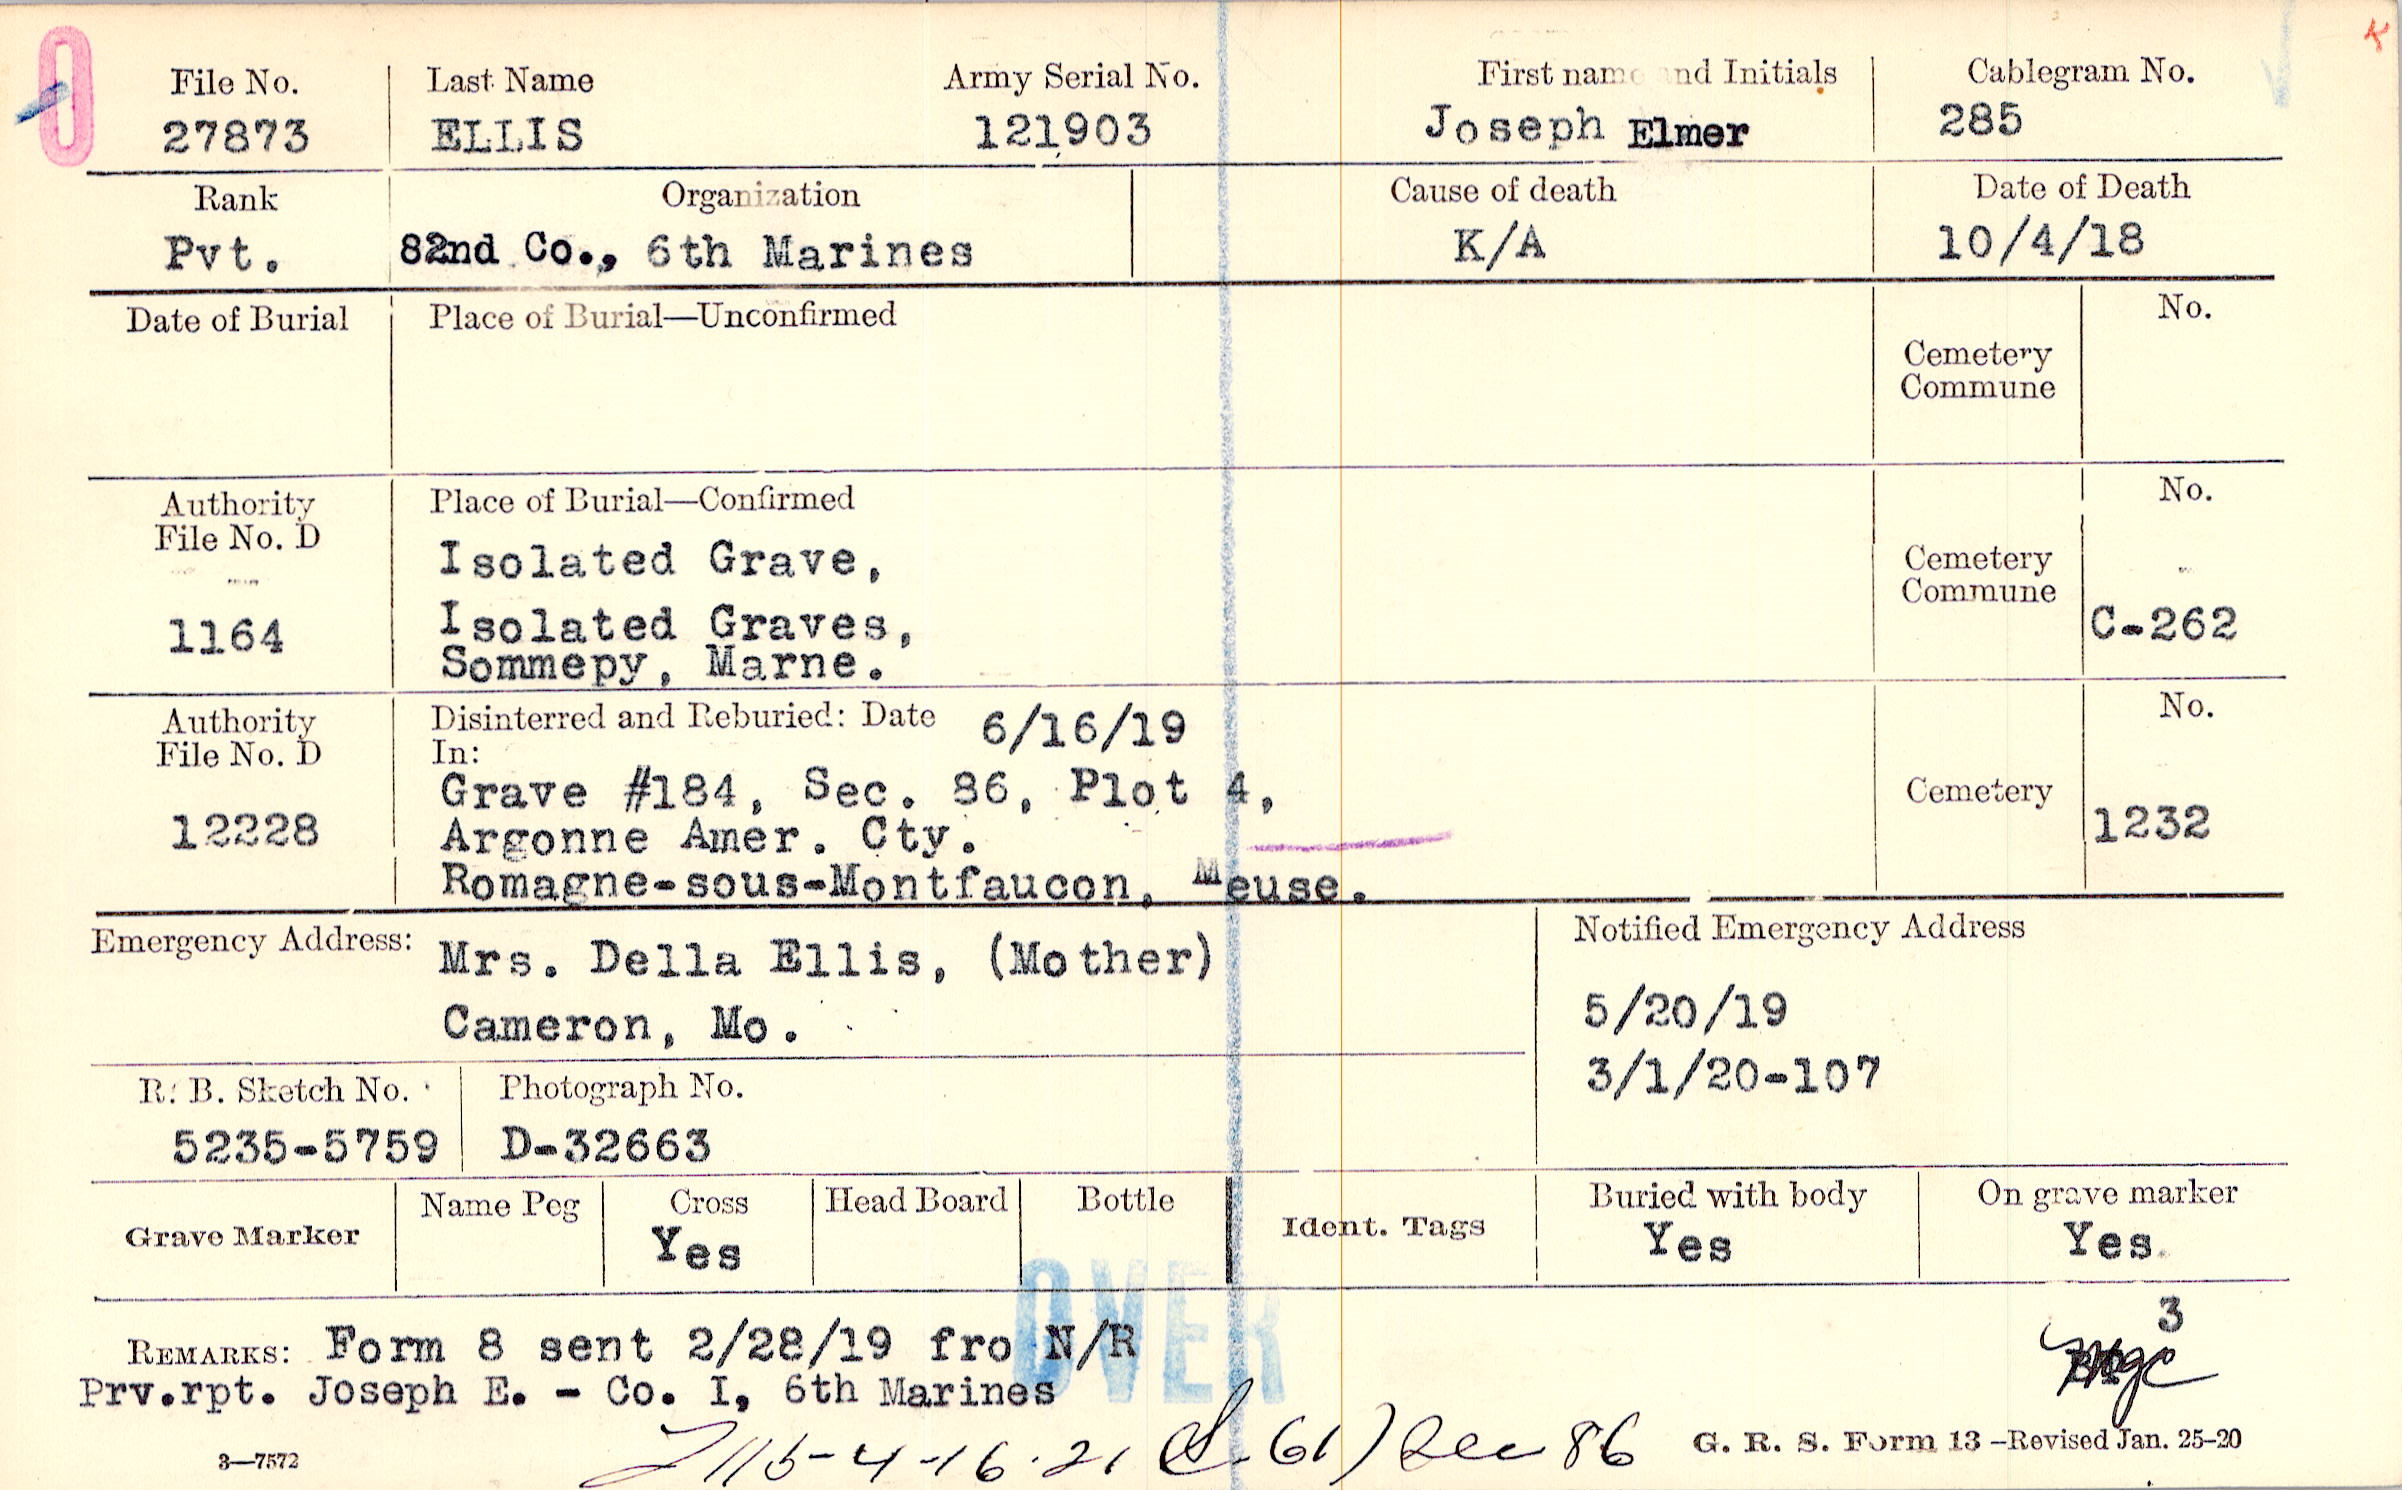 0
K
File No. Last Name Army Serial No. First name and Initials Cablegram No.
27873 ELLIS 121903 Joseph Elmer 285
Rank Organization Cause of death Date of Death
Pvt. 82nd Co., 6th Marines K/A 10/4/18
Date of Burial Place of Burial—Unconfirmed No.
Cemetery
Commune
Authority Place of Burial—Confirmed No.
File No. D
Isolated Grave, Cemetery
Commune
1164 Isolated Graves, C-262
Sommepy, Marne.
Authority Disinterred and Reburied: Date 6/16/19 No.
File No. D In:
Grave #184, Sec. 86, Plot 4, Cemetery
12228 Argonne Amer. Cty. 1232
Romagne-sous-Montfaucon, Meuse.
Emergency Address: Mrs. Della Ellis, (Mother) Notified Emergency Address
Cameron, Mo. 5/20/19
3/1/20-107
R. B. Sketch No. Photograph No.
5235-5759 D-32663
Grave Marker Name Peg Cross Head Board Bottle Ident. Tags Buried with body On grave marker
Yes Yes Yes
OVER
3
REMARKS: Form 8 sent 2/28/19 fro N/R
Prv.rpt. Joseph E. - Co. I, 6th Marines
4-16-21 (S-61) Sec 86
3—7572 G. R. S. Form 13 —Revised Jan. 25-20